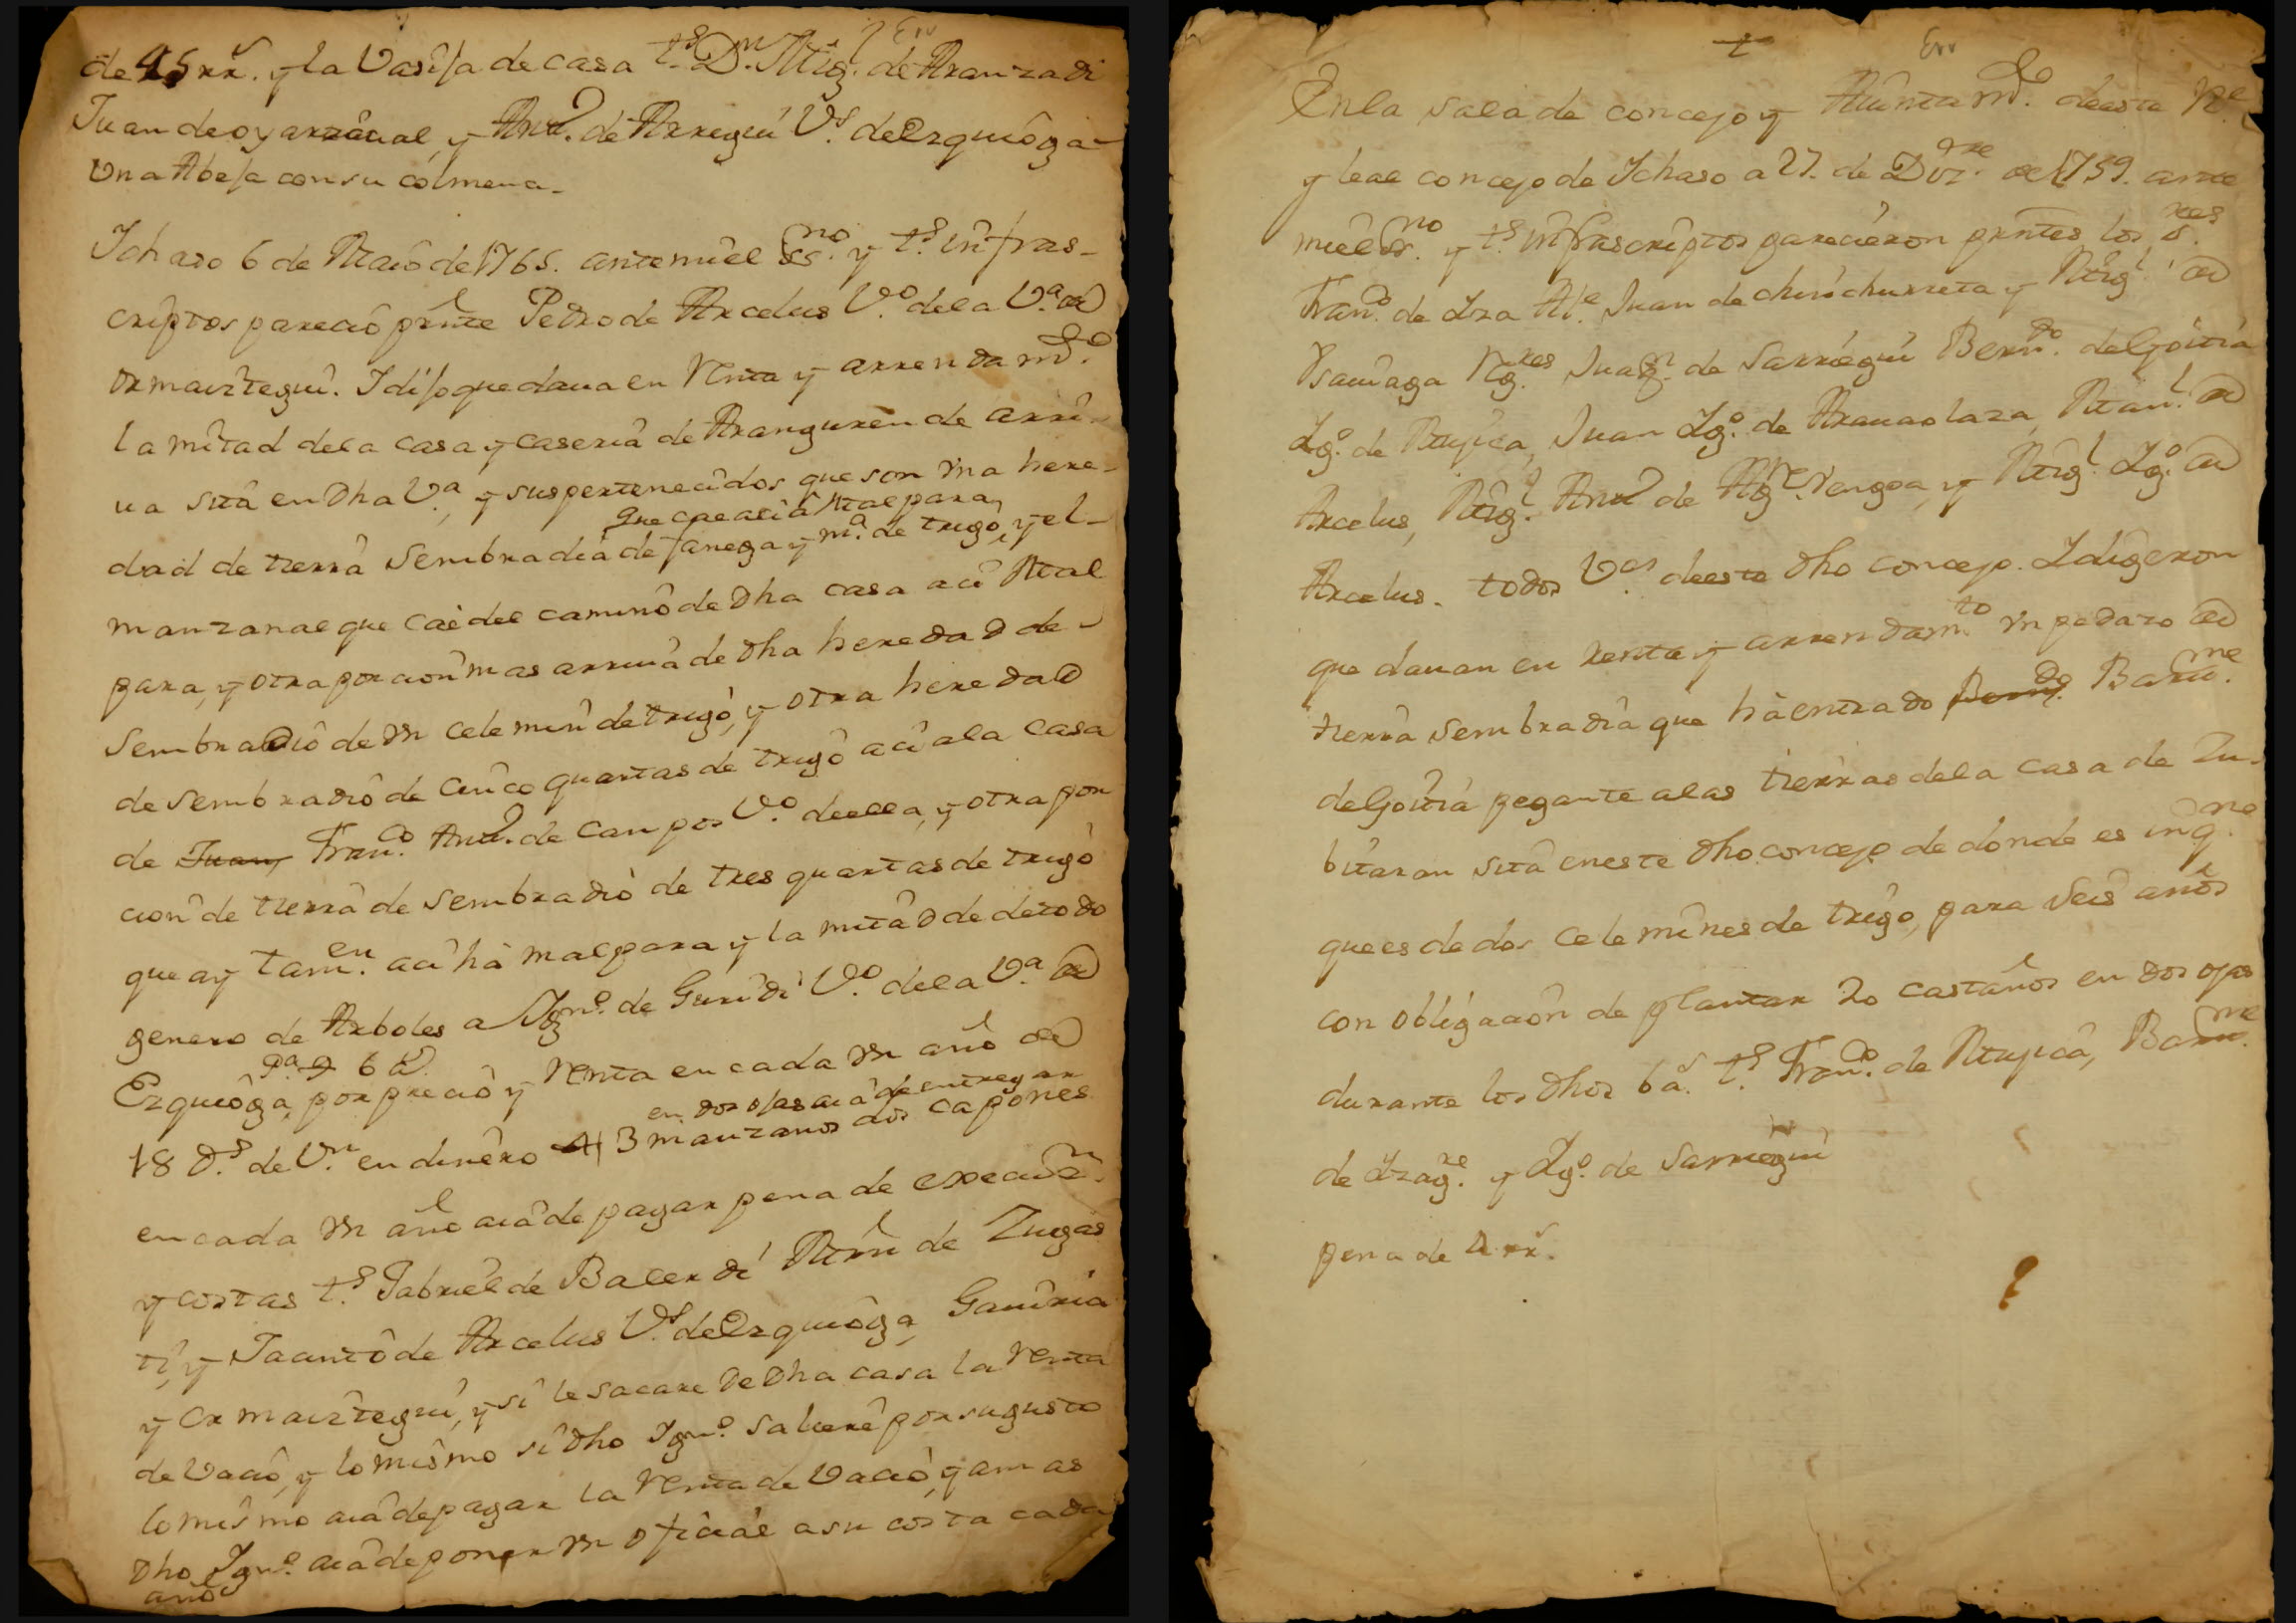 Err
de 45 rr.ˢ y la Vasija de casa t.ˢ D.ⁿ Mig.ˡ de Aranzadi
Juan de oyarzaual, y Ant.º de Arregui V.ˢ de Ezquioga
Vna Abeja con su colmena.
Ichaso 6 de Maio de 1765. ante mi el ss.ⁿᵒ y t.ˢ infras-
criptos parecio prñte Pedro de Arcelus V.º de la V.ª de
Ormaiztegui. I dijo que daua en Renta y arrendam.ᵗᵒ
la mitad de la casa y caseria de Aranguren de arri-
ua sita en Dha V.ª, y sus pertenecidos que son vna here-
que cae acia Malpara,
dad de tierra sembradia de fanega y m.ª de trigo, y el
manzanal que cae del camino de Dha casa aci Mal
para, y otra porcion mas arriua de Dha heredad de
sembradio de vn celemin de trigo, y otra heredad
de sembradio de cinco quartas de trigo aci a la casa
de Juan Fran.ᶜᵒ Ant.º de Campos V.º de ella, y otra por
cion de tierra de sembradio de tres quartas de trigo
que ay tam.ᵉⁿ aci ha malpara y la mitad de de todo
genero de Arboles a Ign.º de Guridi V.º de la V.ª de
p.ª 6 a.ˢ
Ezquioga, por precio y Renta en cada vn año de
en dos ojas acia de entregar
18 D.ˢ de V.ⁿ en dinero 3 manzanos dos capones
en cada vn año acia de pagar pena de execuz.ⁿ
y costas t.ˢ Gabriel de Balerdi Mrñ de Zugas
ti, y Jacinto de Arcelus V.ˢ de Ezquioga, Gauiria
y Ormaiztegui, y si le sacare de Dha casa la Renta
de Vacio, y lo mismo si Dho Ign.º saliere por su gusto
lo mismo acia de pagar la Renta de Vacio, y am as
Dho Ign.º acia de poner vn oficial a su costa cada
año
+
Err
En la sala de concejo y Aiuntam.ᵗᵒ de este N.ᵉ
y leal concejo de Ichaso a 27. de Diz.ʳᵉ de 1759. ante
mi el ss.ⁿᵒ y t.ˢ infrascriptos parecieron prñtes los S.ʳᵉˢ
Fran.ᶜᵒ de Iza Al.ᵉ Juan de chirichurreta y Mig.ˡ de
Vsauiaga Rg.ʳᵉˢ Juaq.ⁿ de Sarriegui Bern.ᵈᵒ de Goitia
Ig.º de Mujica, Juan Ig.º de Aramaolaza, Man.ˡ de
Arcelus, Mig.ˡ Ant.º de Ag.ʳʳᵉvengoa, y Mig.ˡ Ig.º de
Arcelus. todos V.ᵒˢ de este Dho concejo. I digeron
que dauan en renta y arrendam.ᵗᵒ vn pedazo de
tierra sembradia que ha entrado Bern.ᵈᵒ Barm.ᵐᵉ
de Goitia pegante a las tierras de la casa de Zu-
bitaran sita en este Dho concejo de donde es inq.ⁿᵒ
que es de dos celemines de trigo, para seis años
con obligacion de plantar 20 castaños en dos ojas
durante los Dhos 6 a.ˢ t.ˢ Fran.ᶜᵒ de Mujica, Barm.ᵐᵉ
de Izag.ʳʳᵉ y Ig.º de Sarriegui
pena de 4 rr.ˢ